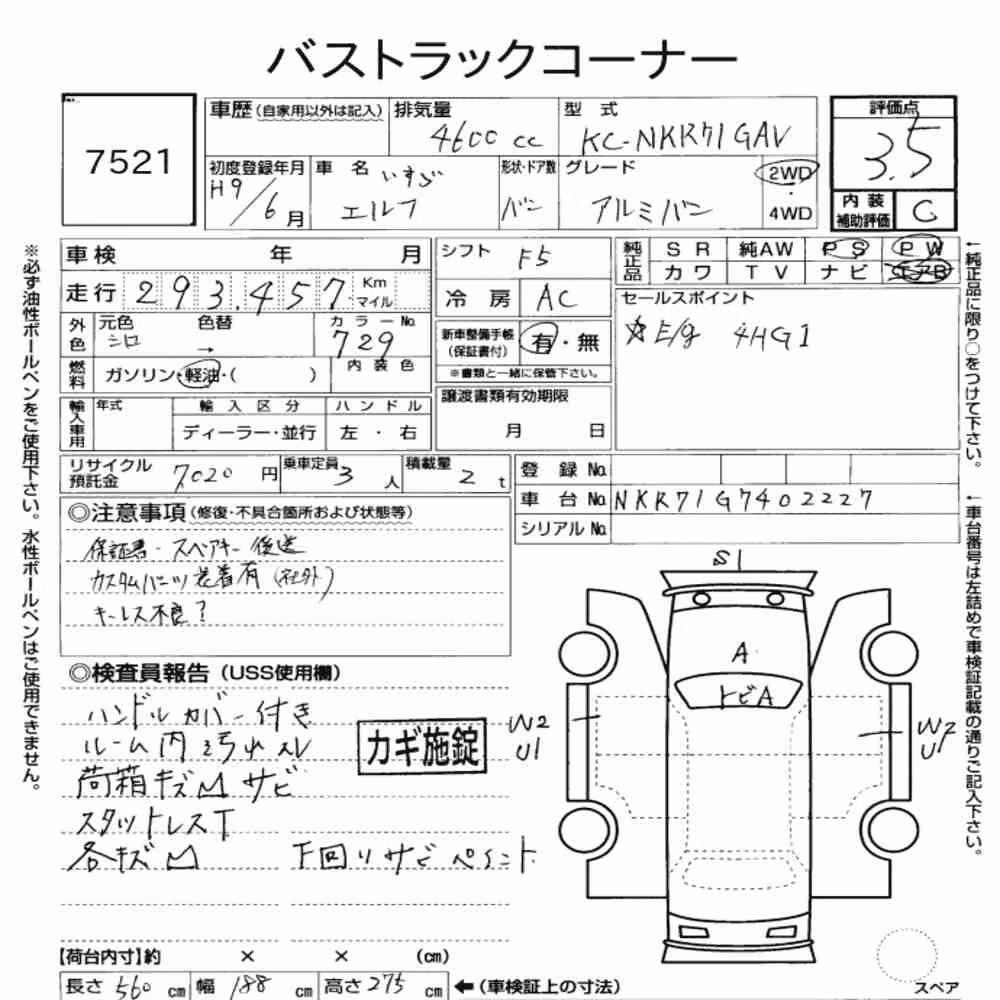 バストラックコーナー
7521
車歴(自家用以外は記入)
排気量
4600 cc
型式
KC-NKR71GAV
評価点
3.5
初度登録年月
H9/6月
車名 いすゞ
エルフ
形状・ドア数
バン
グレード
アルミバン
2WD
・
4WD
内装
補助評価
C
車検 年 月
シフト F5
純正品
SR 純AW PS PW
カワ TV ナビ エアB
走行 293.457 Km マイル
冷房 AC
セールスポイント
☆E/g 4HG1
外色
元色 色替
シロ →
カラーNo.
729
新車整備手帳
(保証書付)
有・無
※書類と一緒に保管下さい。
燃料
ガソリン・軽油・( )
内装色
譲渡書類有効期限
月 日
輸入車用
年式
輸入区分 ハンドル
ディーラー・並行 左・右
リサイクル
預託金 7020円
乗車定員 3人
積載量 2t
登録No.
車台No. NKR71G7402227
シリアルNo.
◎注意事項(修復・不具合箇所および状態等)
保証書・スペアキー後送
カスタムパーツ装着有(社外)
キーレス不良?
◎検査員報告(USS使用欄)
ハンドルカバー付き
ルーム内汚れスレ
荷箱キズ凹サビ
スタットレスT
各キズ凹 下回りサビペイント
カギ施錠
S1
A
トビA
W2
U1
W2
U1
【荷台内寸】約 × × (cm)
長さ 560 cm 幅 188 cm 高さ 275 cm ←(車検証上の寸法)
スペア
※必ず油性ボールペンをご使用下さい。水性ボールペンはご使用できません。
←純正品に限り○をつけて下さい。
←車台番号は左詰めで車検証記載の通りご記入下さい。